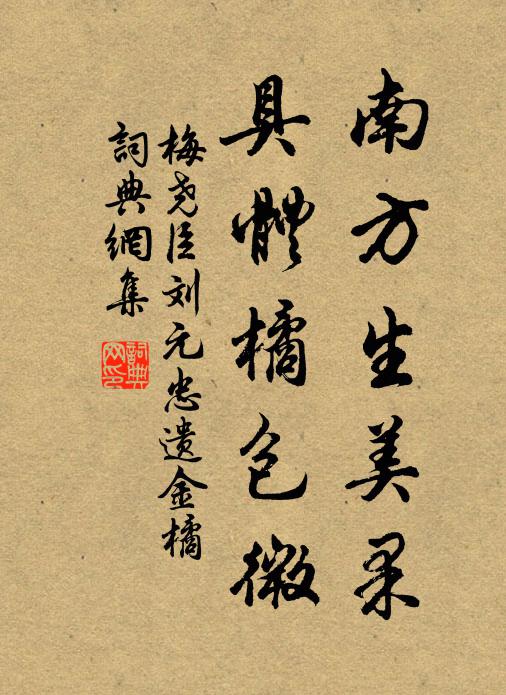 南方生美果
具體橘包微
梅尧臣刘元忠遗金橘
詞典網集
詞典网印